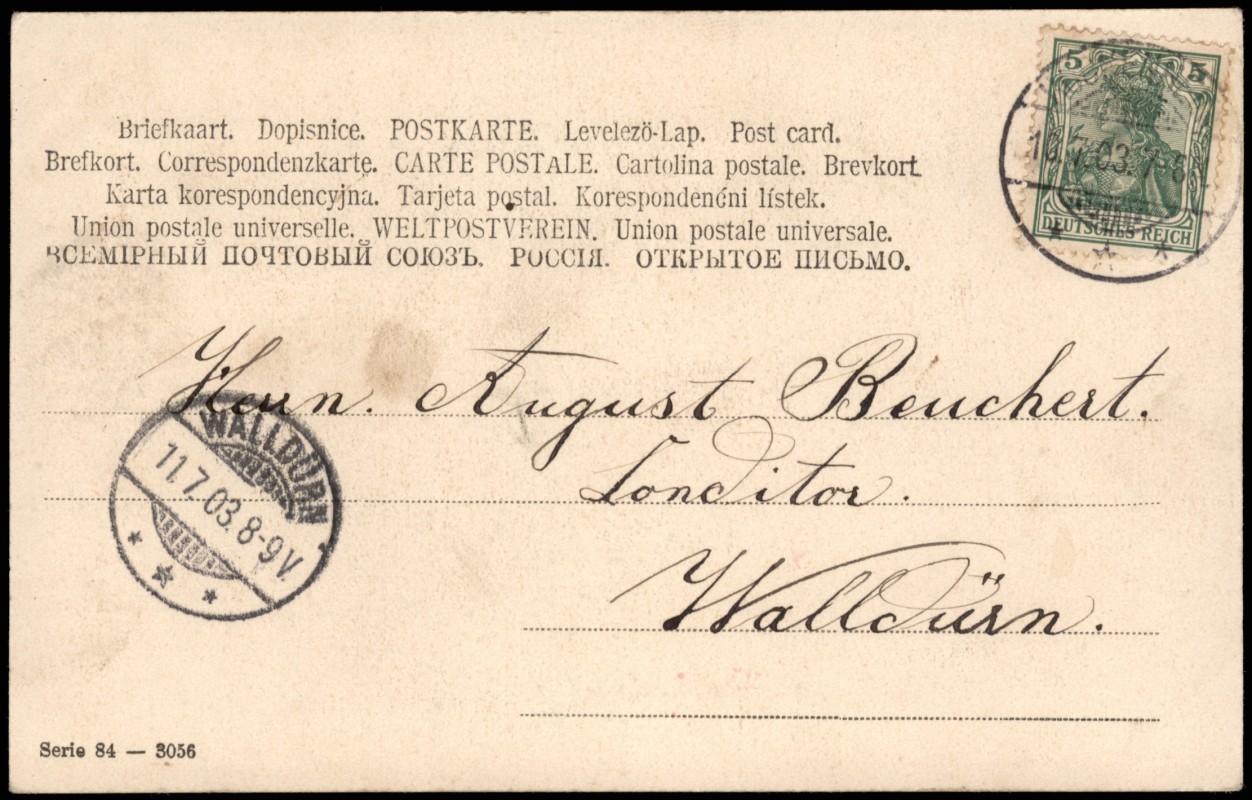 Briefkaart. Dopisnice. POSTKARTE. Levelezö-Lap. Post card.
Brefkort. Correspondenzkarte. CARTE POSTALE. Cartolina postale. Brevkort
Karta korespondencyjna. Tarjeta postal. Korespondenční lístek.
Union postale universelle. WELTPOSTVEREIN. Union postale universale.
ВСЕМІРНЫЙ ПОЧТОВЫЙ СОЮЗЪ. РОССІЯ. ОТКРЫТОЕ ПИСЬМО.
5 5
DEUTSCHES REICH
Herrn. August Beuchert.
Conditor.
Walldürn.
WALLDÜRN
11.7.03.8-9V.
Serie 84 — 3056